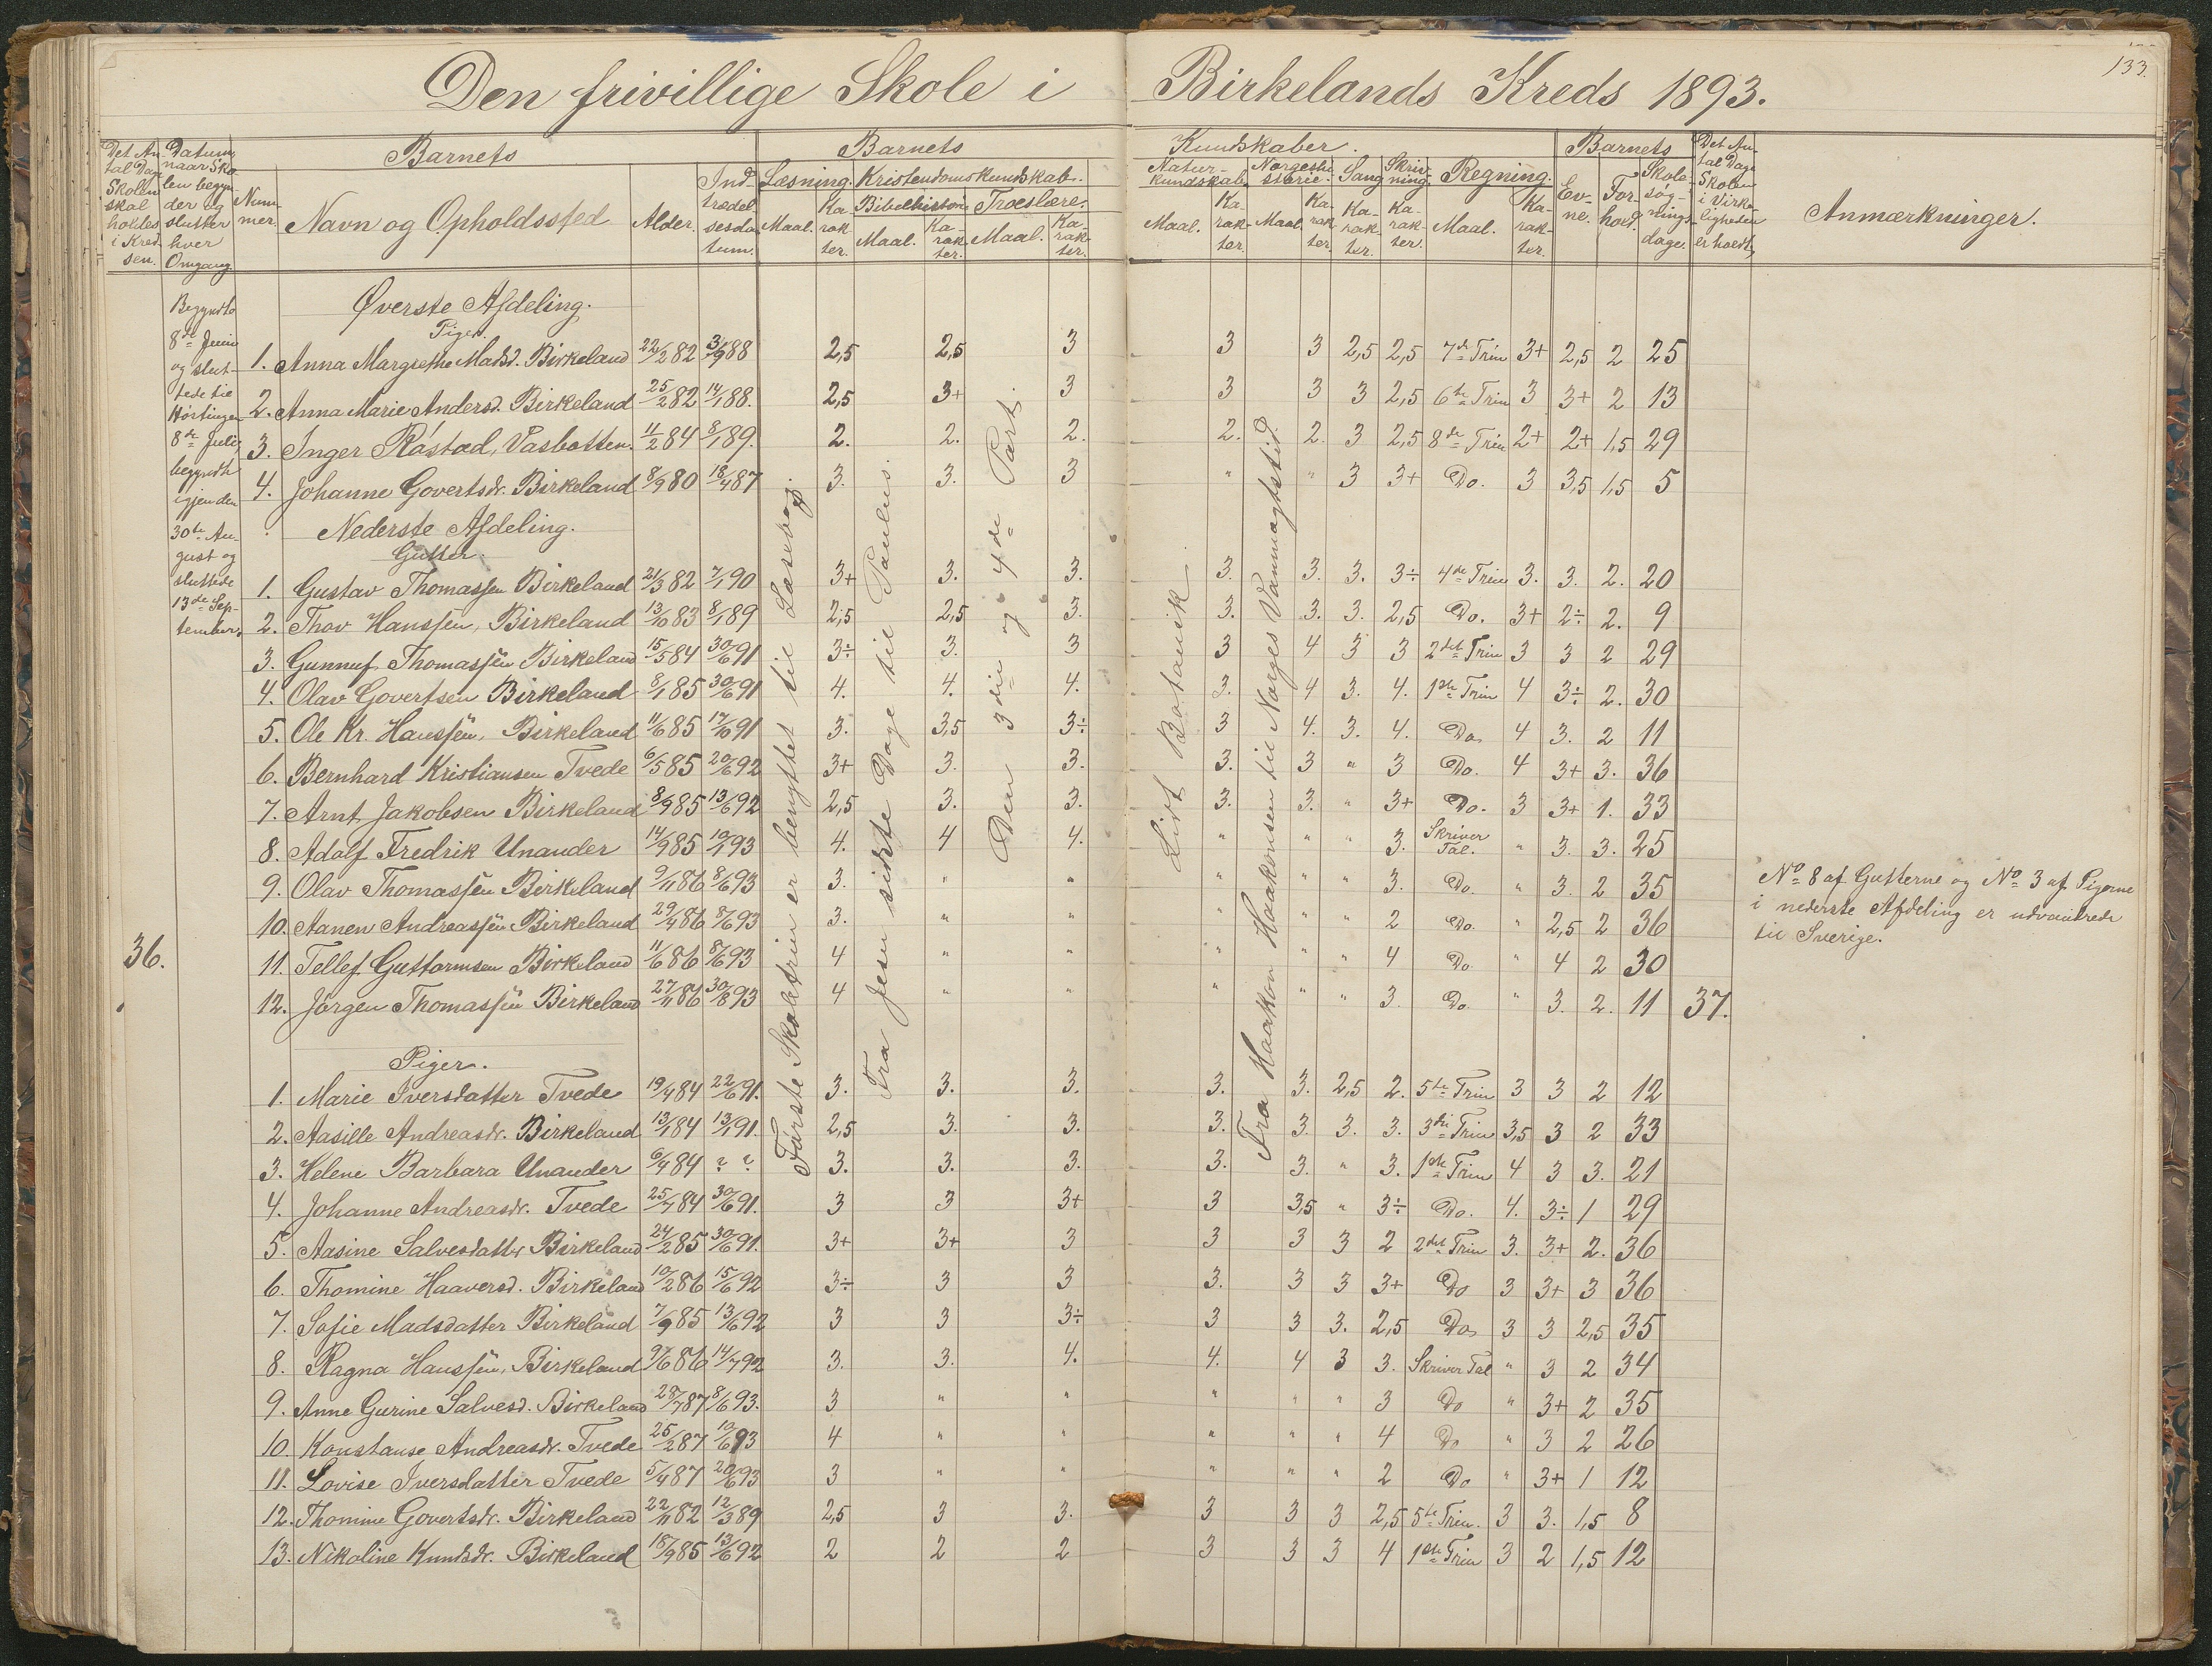 133.
Den frivillige Skole i Birkelands Kreds 1893.
Det An- tal Dage Skolen skal holdes i Kred- sen.
Datum, naar Sko- len begyn- der og slutter hver Omgang.
Barnets
Num- mer.
Navn og Opholdssted
Alder.
Ind- trædel- sesda- tum.
Barnets Kundskaber.
Læsning. Maal. Ka- rak- ter.
Kristendomskundskab.
Bibelhistorie Maal. Ka- rak- ter.
Troeslære. Maal. Ka- rak- ter.
Natur- kundskab. Maal. Ka- rak- ter.
Norgeshi- storie. Maal. Ka- rak- ter.
Sang Ka- rak- ter.
Skriv- ning. Ka- rak- ter.
Regning. Maal. Ka- rak- ter.
Barnets
Ev- ne.
For- hold.
Skole- søg- nings- dage.
Det An- tal Dage Skolen i Virke- ligheden er holdt,
Anmærkninger.
Begyndte
8de Juni
og slut-
tede til
Høstingen
8de Juli,
begyndte
igjen den
30te Au-
gust og
sluttede
13de Sep-
tember.
36.
Første Skoletrin er benyttet til Læsebog.
Fra Jesu sidste Dage til Paulus.
Den 3die og 4de Part.
Lidt Botanik
Fra Haakon Haakonsen til Norges Vanmagtstid.
Øverste Afdeling.
Piger.
1. Anna Margrethe Madsd. Birkeland 22/2 82 3/9 88 2,5 2,5 3 3 3 2,5 2,5 7de Trin 3+ 2,5 2 25
2. Anna Marie Andersd. Birkeland 25/2 82 14/1 88. 2,5 3+ 3 3 3 3 2,5 6te Trin 3 3+ 2 13
3. Inger Råstad, Vasbotten. 11/2 84 8/1 89. 2. 2. 2. 2. 2. 3 2,5 8de Trin 2+ 2+ 1,5 29
4. Johanne Govertsdr. Birkeland 8/9 80 18/4 87 3. 3. 3 " " 3 3+ Do. 3 3,5 1,5 5
Nederste Afdeling.
Gutter.
1. Gustav Thomassen Birkeland 21/3 82 7/1 90 3+ 3. 3. 3. 3. 3. 3÷ 4de Trin 3. 3. 2. 20
2. Thov Hanssen, Birkeland 13/10 83 8/1 89 2,5 2,5 3. 3. 3. 3. 2,5 Do. 3+ 2÷ 2. 9
3. Gunnuf Thomassen Birkeland 15/5 84 30/6 91 3÷ 3. 3 3 4 3 3 2det Trin 3 3 2 29
4. Olav Govertsen Birkeland 8/1 85 30/6 91 4. 4. 4. 3. 4 3. 4. 1ste Trin 4 3÷ 2. 30
5. Ole Kr. Hanssen, Birkeland 11/6 85 17/6 91 3. 3,5 3÷ 3 4. 3. 4. Do. 4 3. 2 11
6. Bernhard Kristiansen Tvede 6/5 85 20/6 92 3+ 3. 3. 3. 3 " 3 Do. 4 3+ 3. 36
7. Arnt Jakobsen Birkeland 8/9 85 13/6 92 2,5 3. 3. 3. 3. " 3+ Do. 3 3+ 1. 33
8. Adolf Fredrik Unander 14/9 85 10/1 93 4. 4 4. " " " 3. Skriver Tal. " 3. 3. 25
9. Olav Thomassen Birkeland 9/11 86 8/6 93 3. " " " " " 3. Do. " 3. 2 35
10. Aanen Andreassen Birkeland 29/4 86 8/6 93 3. " " " " " 2 Do. " 2,5 2 36
11. Tellef Guttormsen Birkeland 11/6 86 8/6 93 4 " " " " " 4 Do. " 4 2 30
12. Jørgen Thomassen Birkeland 27/11 86 30/8 93 4 " " " " " 3. Do. " 3. 2. 11 37.
Piger.
1. Marie Iversdatter Tvede 19/4 84 22/6 91. 3. 3. 3. 3. 3. 2,5 2. 5te Trin 3 3 2 12
2. Aasille Andreasdr. Birkeland 13/1 84 13/1 91. 2,5 3. 3. 3. 3. 3. 3. 3die Trin 3,5 3 2 33
3. Helene Barbara Unander 6/4 84 ? ? 3. 3. 3. 3. 3. " 3. 1ste Trin 4 3 3. 21
4. Johanne Andreasdr. Tvede 25/7 84 30/6 91. 3 3 3+ 3 3,5 " 3÷ Do. 4. 3÷ 1 29
5. Aasine Salvesdatter Birkeland 24/2 85 30/6 91. 3+ 3+ 3 3 3 3 2 2det Trin 3. 3+ 2. 36
6. Thomine Haaversd. Birkeland 10/2 86 15/6 92 3÷ 3 3 3. 3 3 3+ Do 3 3+ 3 36
7. Sofie Madsdatter Birkeland 7/9 85 13/6 92 3 3 3÷ 3 3 3. 2,5 Do. 3 3 2,5 35
8. Ragna Hanssen, Birkeland 9/6 86 14/7 92 3. 3. 4. 4. 4 3 3. Skriver Tal " 3 2 34
9. Anne Gurine Salvesd. Birkeland 28/7 87 8/6 93. 3 " " " " " 3 Do " 3+ 2 35
10. Konstanse Andreasdr. Tvede 25/2 87 10/6 93 4 " " " " " 4 Do " 3 2 26
11. Lovise Iversdatter Tvede 5/4 87 20/6 93 3 " " " " " 2 Do " 3+ 1 12
12. Thomine Govertsdr. Birkeland 22/11 82 12/3 89 2,5 3 3. 3 3 3 2,5 5te Trin. 3 3. 1,5 8
13. Nikoline Knudsdr. Birkeland 18/9 85 13/6 92 2 2 2 3 3 3 4 1ste Trin 3 2 1,5 12
No 8 af Gutterne og No 3 af Pigerne
i nederste Afdeling er udvandrede
til Sverige.